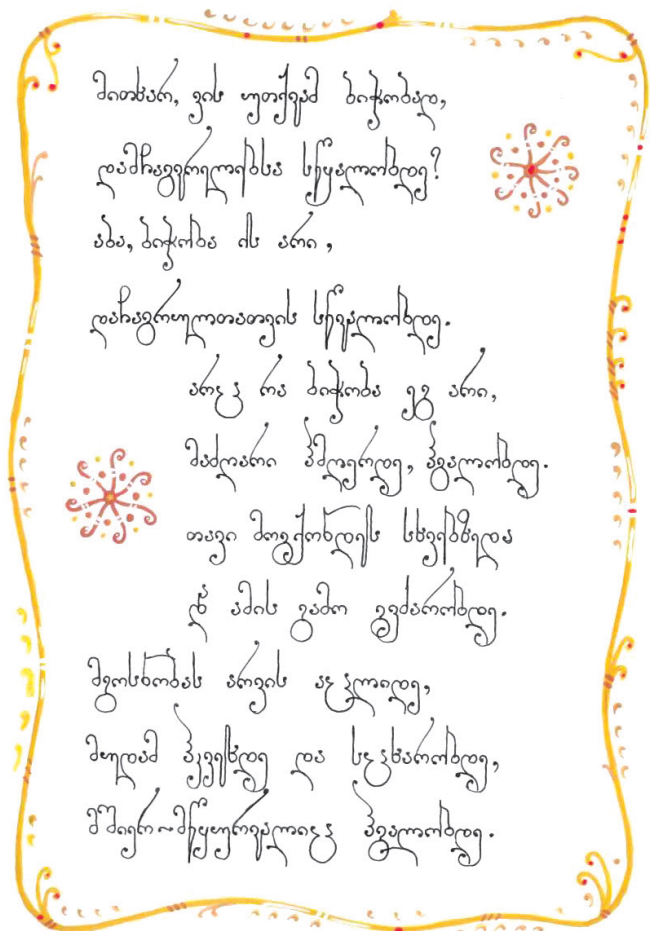 მითხარ, ვის უთქვამ ბიჭობად,
დამჩაგვრელებსა სწყალობდე?
აბა, ბიჭობა ის არი,
დაჩაგრულთათვის სწვალობდე.
არც რა ბიჭობა ეგ არი,
მაძღარი ჰმღერდე, ჰგალობდე.
თავი მოგქონდეს სხვებზედა
და ამის გამო
მგოსნობას არვის აცლიდე,
მუდამ ჰკვეხდე და სცხარობდე,
მშიერ-მწყურვალიც ჰგალობდე.